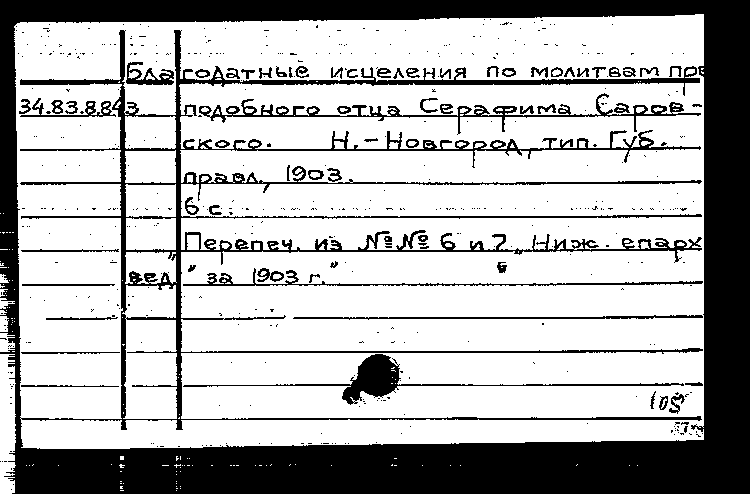 Благодатные исцеления по молитвам пре
34.83.8.843 подобного отца Серафима Саров-
ского. Н.-Новгород, тип. Губ.
правл, 1903.
6 с.
Перепеч. из №№ 6 и 7 „Ниж. епарх
вед." за 1903 г."
105